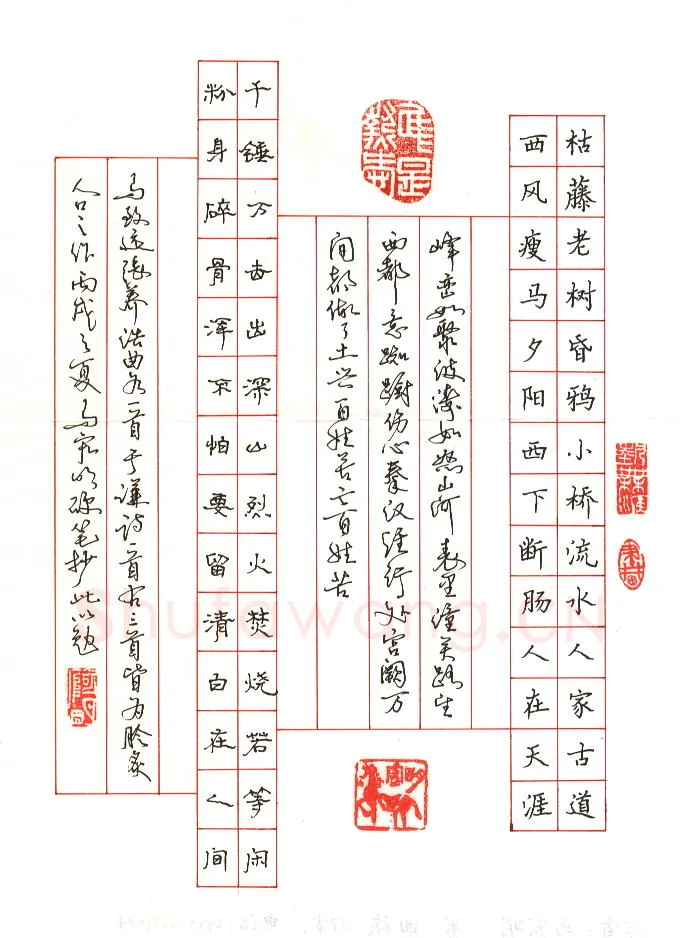 枯藤老树昏鸦小桥流水人家古道
西风瘦马夕阳西下断肠人在天涯
峰峦如聚波涛如怒山河表里潼关路望
西都意踟蹰伤心秦汉经行处宫阙万
间都做了土兴百姓苦亡百姓苦
千锤万击出深山烈火焚烧若等闲
粉身碎骨浑不怕要留清白在人间
马致远张养浩曲各一首于谦诗一首右三首皆为脍炙
人口之作丙戌之夏马宏明硬笔抄此以勉
Shufawang.CN